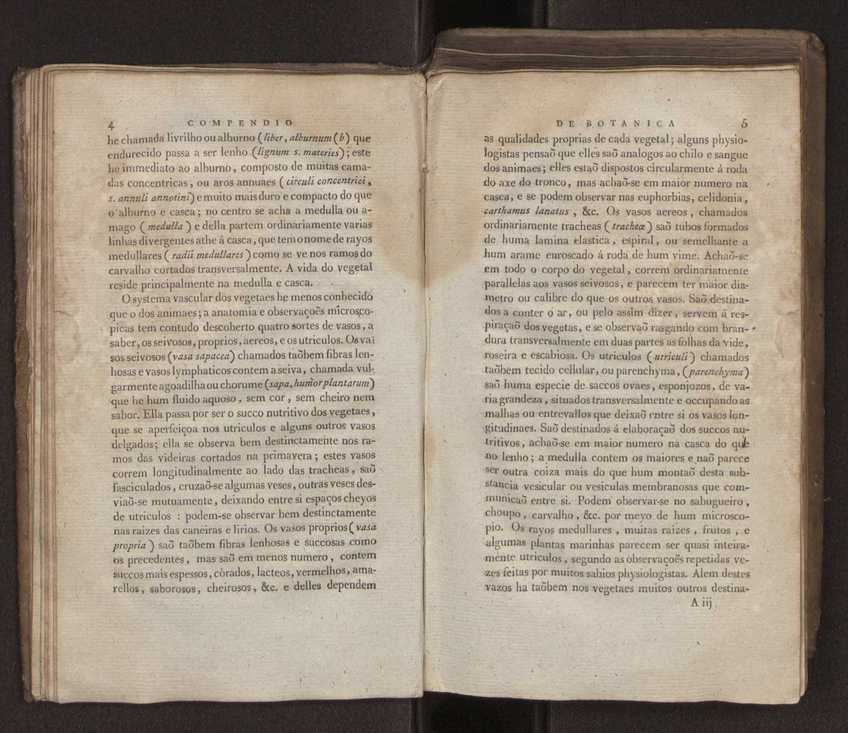 4 COMPENDIO
he chamada livrilho ou alburno (liber, alburnum (b) que
endurecido passa a ser lenho (lignum s. materies); este
he immediato ao alburno, composto de muitas cama-
das concentricas, ou aros annuaes (circuli concentrici,
s. annuli annotini) e muito mais duro e compacto do que
o alburno e casca; no centro se acha a medulla ou a-
mago (medulla) e della partem ordinariamente varias
linhas divergentes athe á casca, que tem o nome de rayos
medullares (radii medullares) como se ve nos ramos do
carvalho cortados transversalmente. A vida do vegetal
reside principalmente na medulla e casca.
O systema vascular dos vegetaes he menos conhecido
que o dos animaes; a anatomia e observaçoẽs microsco-
picas tem contudo descoberto quatro sortes de vasos, a
saber, os seivosos, proprios, aereos, e os utriculos. Os va-
sos seivosos (vasa sapacea) chamados taõbem fibras len-
hosas e vasos lymphaticos contem a seiva, chamada vul-
garmente agoadilha ou chorume (sapa, humor plantarum)
que he hum fluido aquoso, sem cor, sem cheiro nem
sabor. Ella passa por ser o succo nutritivo dos vegetaes,
que se aperfeiçoa nos utriculos e alguns outros vasos
delgados; ella se observa bem destinctamente nos ra-
mos das videiras cortados na primavera; estes vasos
correm longitudinalmente ao lado das tracheas, saõ
fasciculados, cruzaõ-se algumas veses, outras veses des-
viaõ-se mutuamente, deixando entre si espaços cheyos
de utriculos : podem-se observar bem destinctamente
nas raizes das caneiras e lirios. Os vasos proprios (vasa
propria) saõ taõbem fibras lenhosas e succosas como
os precedentes, mas saõ em menos numero, contem
succos mais espessos, còrados, lacteos, vermelhos, ama-
rellos, saborosos, cheirosos, &c. e delles dependem
DE BOTANICA 5
as qualidades proprias de cada vegetal; alguns physio-
logistas pensaõ que elles saõ analogos ao chilo e sangue
dos animaes; elles estaõ dispostos circularmente á roda
do axe do tronco, mas achaõ-se em maior numero na
casca, e se podem observar nas euphorbias, celidonia,
carthamus lanatus, &c. Os vasos aereos, chamados
ordinariamente tracheas (tracheæ) saõ tubos formados
de huma lamina elastica, espiral, ou semelhante a
hum arame enroscado á roda de hum vime. Achaõ-se
em todo o corpo do vegetal, correm ordinariamente
parallelas aos vasos seivosos, e parecem ter maior dia-
metro ou calibre do que os outros vasos. Saõ destina-
dos a conter o ar, ou pelo assim dizer, servem á res-
piraçaõ dos vegetas, e se observaõ rasgando com bran-
dura transversalmente em duas partes as folhas da vide,
roseira e escabiosa. Os utriculos (utriculi) chamados
taõbem tecido cellular, ou parenchyma, (parenchyma)
saõ huma especie de saccos ovaes, esponjozos, de va-
ria grandeza, situados transversalmente e occupando as
malhas ou entrevallos que deixaõ entre si os vasos lon-
gitudinaes. Saõ destinados á elaboraçaõ dos succos nu-
tritivos, achaõ-se em maior numero na casca do que
no lenho; a medulla contem os maiores e naõ parece
ser outra coiza mais do que hum montaõ desta sub-
stancia vesicular ou vesiculas membranosas que com-
municaõ entre si. Podem observar-se no sabugueiro,
choupo, carvalho, &c. por meyo de hum microsco-
pio. Os rayos medullares, muitas raizes, frutos, e
algumas plantas marinhas parecem ser quasi inteira-
mente utriculos, segundo as observaçoẽs repetidas ve-
zes feitas por muitos sabios physiologistas. Alem destes
vazos ha taõbem nos vegetaes muitos outros destina-
A iij